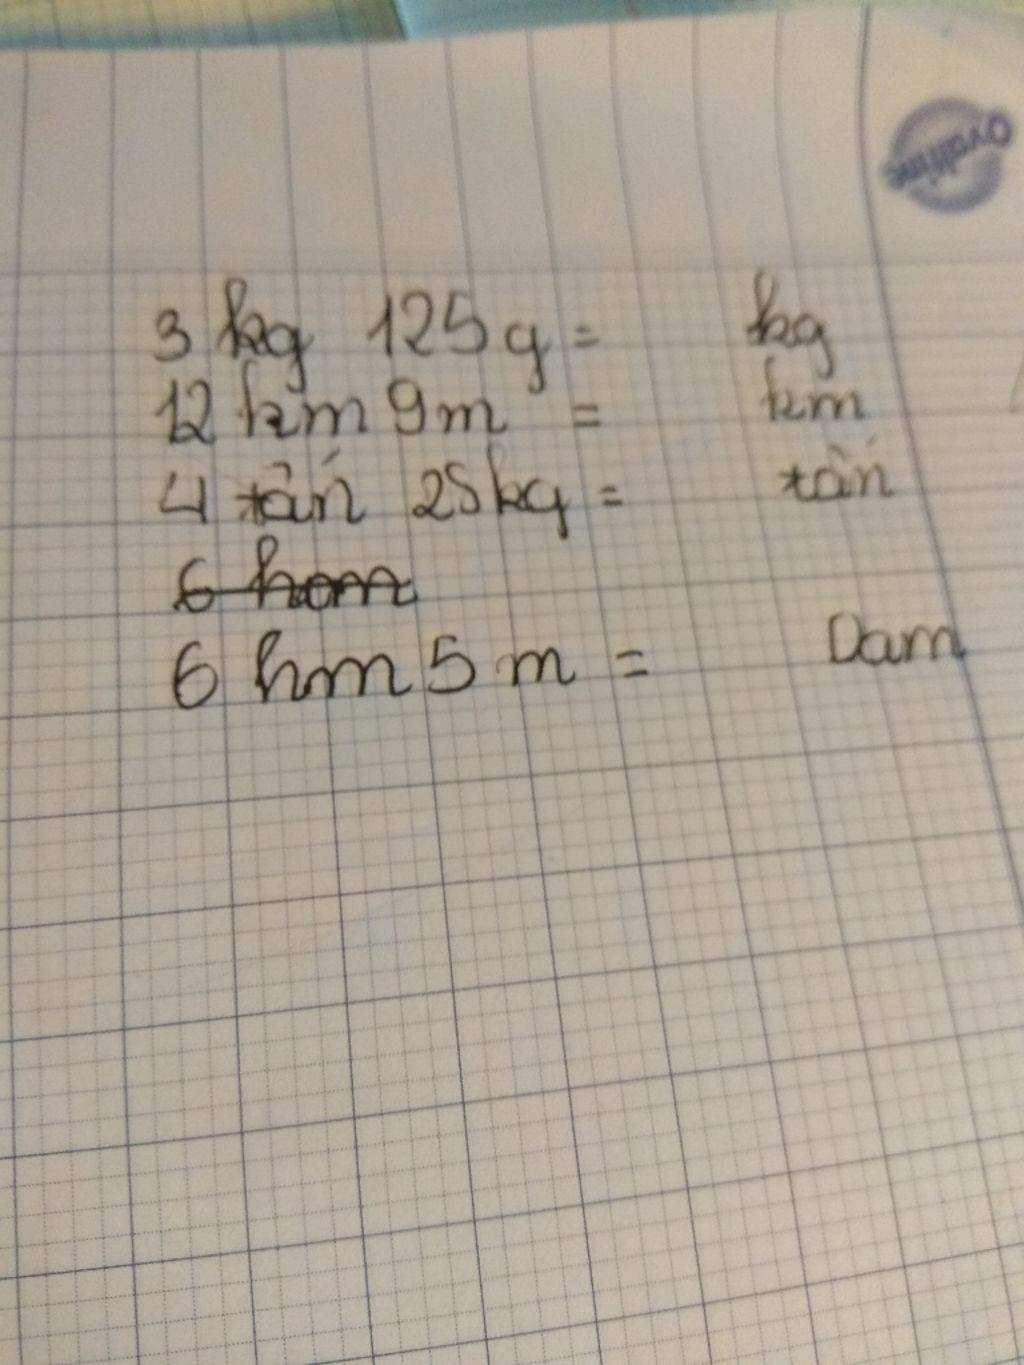 Ovaltine
3 kg 125g = kg
12 km 9m = km
4 tấn 25kg = tấn
6 hom
6 hm 5 m = Dam